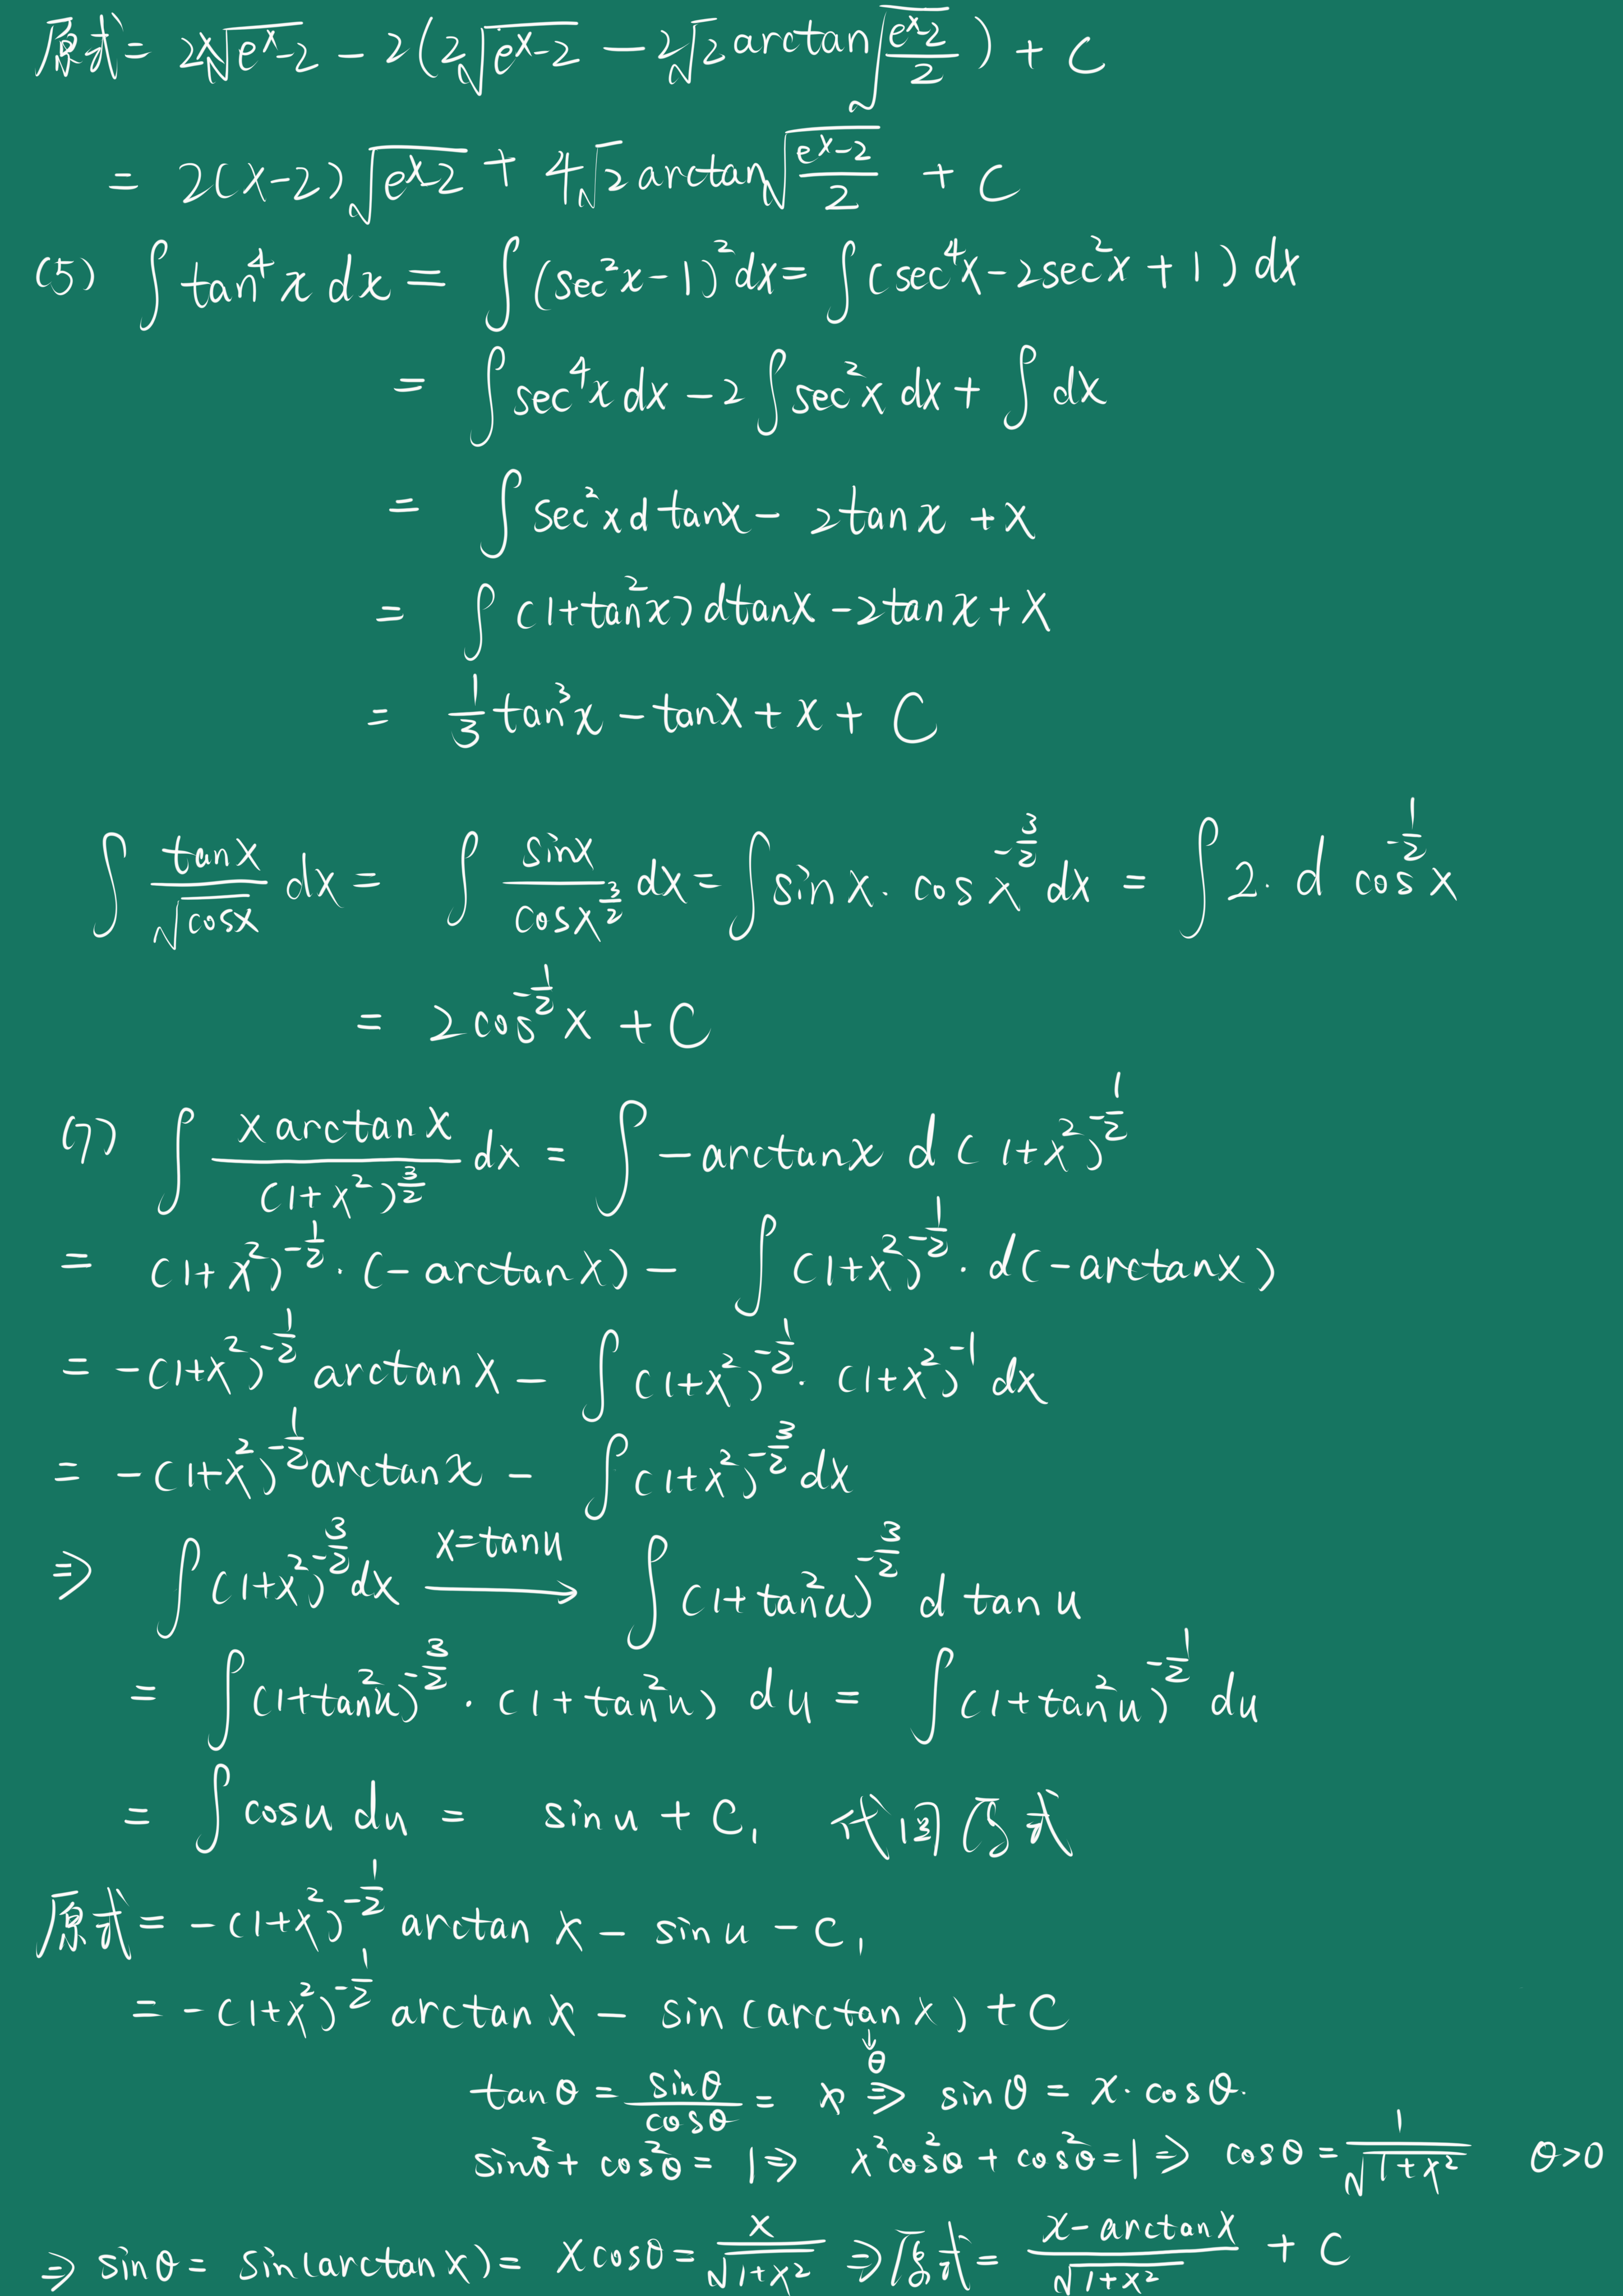 原式= 2x√(e^x-2) - 2(2√(e^x-2) - 2√2 arctan√((e^x-2)/2)) + C
= 2(x-2)√(e^x-2) + 4√2 arctan√((e^x-2)/2) + C
(5) ∫tan⁴x dx = ∫(sec²x-1)²dx = ∫(sec⁴x-2sec²x+1)dx
= ∫sec⁴x dx - 2∫sec²x dx + ∫dx
= ∫sec²x d tanx - 2tanx + x
= ∫(1+tan²x)dtanx - 2tanx + x
= 1/3 tan³x - tanx + x + C
∫ tanx/√cosx dx = ∫ sinx/cosx^(3/2) dx = ∫sinx·cosx^(-3/2) dx = ∫2·d cos^(-1/2)x
= 2cos^(-1/2)x + C
(7) ∫ xarctanx/(1+x²)^(3/2) dx = ∫-arctanx d(1+x²)^(-1/2)
= (1+x²)^(-1/2)·(-arctanx) - ∫(1+x²)^(-1/2)·d(-arctanx)
= -(1+x²)^(-1/2) arctanx - ∫(1+x²)^(-1/2)·(1+x²)^(-1) dx
= -(1+x²)^(-1/2) arctanx - ∫(1+x²)^(-3/2) dx
⇒ ∫(1+x²)^(-3/2) dx x=tanu → ∫(1+tan²u)^(-3/2) d tanu
= ∫(1+tan²u)^(-3/2)·(1+tan²u) du = ∫(1+tan²u)^(-1/2) du
= ∫cosu du = sinu + C₁ 代回原式
原式= -(1+x²)^(-1/2) arctanx - sinu - C₁
= -(1+x²)^(-1/2) arctanx - sin(arctanx) + C
↓
θ
tanθ = sinθ/cosθ = x ⇒ sinθ = x·cosθ.
sin²θ + cos²θ = 1 ⇒ x²cos²θ + cos²θ = 1 ⇒ cosθ = 1/√(1+x²) θ>0
⇒ sinθ = sin(arctanx) = xcosθ = x/√(1+x²) ⇒ 原式 = (x-arctanx)/√(1+x²) + C